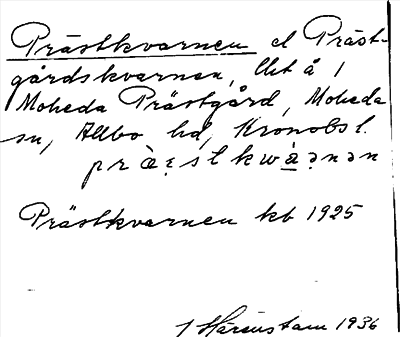 Prästkvarnen el Präst-
gårdskvarnen, Ut å 1
Moheda Prästgård, Moheda
sn, Allbo hd, Kronobs l.
Prästkvarnen kb 1925
1936